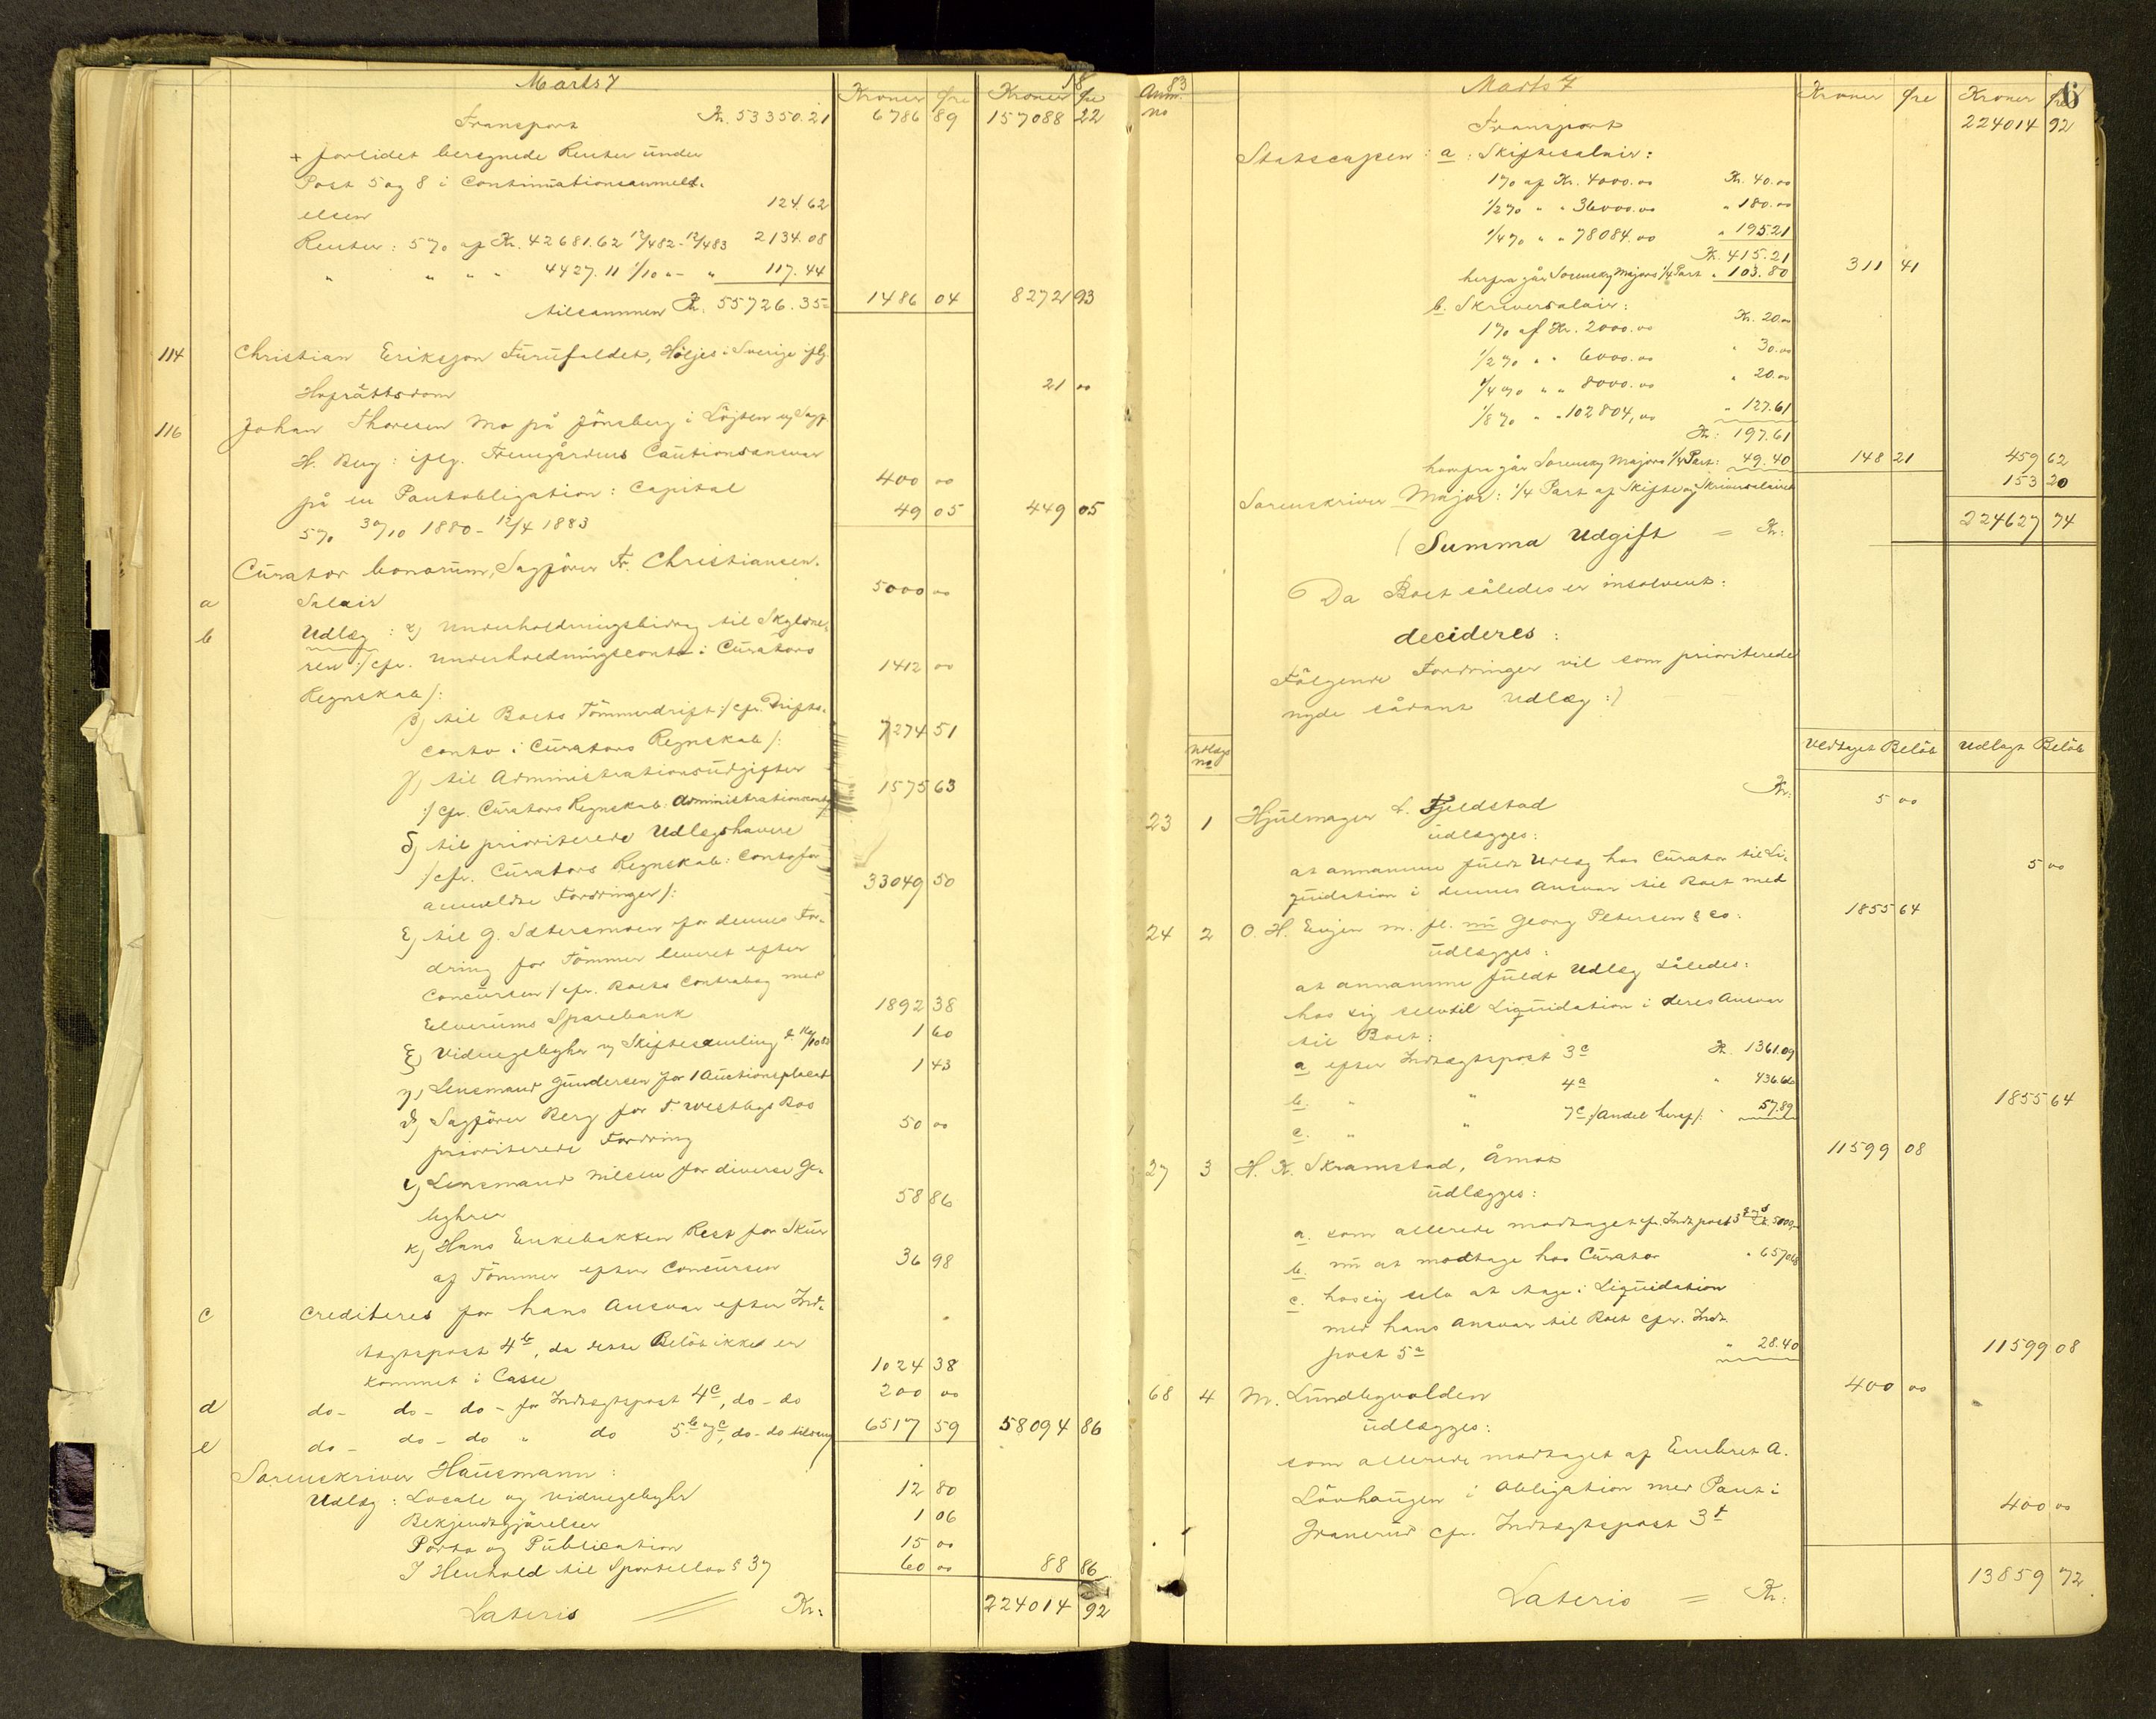 Marts 7 18
Kroner Øre Kroner Øre
Transport Kr. 53350.21 6786 89 157088 22
+ forlidet beregnede Renter under
Post 5 og 8 i Continuationsanmeld-
elsen 124.62
Renter: 5% af Kr. 42681.62 12/4 82 - 12/4 83 2134.08
" " " " 4427.11 1/10 "- " 117.44
tilsammen Kr. 55726.35 1486 04 8272 93
114 Christian Eriksson Furufaldet, Höljes i Sverige iflg.
Hofrättsdom 21 00
116 Johan Thoresen Mo på Jönsberg i Löjten og Sagf.
H. Berg: iflg. Fremgårdens Cautionsansvar
på en Pantobligation: Capital 400 00
5% 30/10 1880 - 12/4 1883 49 05 449 05
Curator bonorum, Sagförer Fr. Christiansen.
a Salair 5000 00
b Udlæg: α) Underholdningsbidrag til Skyldne-
ren :/ cfr. Underholdningsconto i Curators
Regnskab /: 1412 00
β) til Boets Tömmerdrift :/ cfr. Drifts-
conto i Curators Regnskab /: 7274 51
γ) til Administrationsudgifter
:/ cfr. Curators Regnskab: Administrationsconto /: 1575 63
δ) til prioriterede Udlægshavere
/ cfr. Curators Regnskab: Conto for
anmeldte Fordringer /: 33049 50
ε) til G. Sætersmoen for dennes For-
dring for Tömmer leveret efter
Concursen / cfr. Boets Contrabog med
Elverums Sparebank 1892 38
ξ) Vidnegebyhr og Skiftesamling 1 60
η) Lensmand Gundersen for 1 Auctionsplacat 1 43
ϑ) Sagförer Berg for T. Westbys Bos
prioriterede Fordring 50 00
ι) Lensmand Nilsen for diverse Ge-
byhrer 58 86
κ) Hans Enkebakken Rest for Skur
af Tömmer efter Concursen 36 98
c Crediteres for hans Ansvar efter Ind-
tægtspost 4b, da dette Belöb ikke er
kommet i Casse 1024 38
d do - do - do - for Indtægtspost 4c, do - do 200 00
e do - do - do " do 5b og c, do - do 6517 59 58094 86
Sorenskriver Hausmann:
Udlæg: Locale og Vidnegebyhr 12 80
Bekjendtgjörelser 1 06
Porto og Publication 15 00
I Henhold til Sportellov § 37 60 00 88 86
Lateris = Kr: 224014 92
83 Marts 7 6
Anm. No Kroner Øre Kroner Øre
Transport 224014 92
Statscassen: a: Skiftesalair:
1% af Kr. 4000.00 Kr. 40.00
1/2% " " 36000.00 " 180.00
1/4% " " 78084.00 " 195.21
Kr. 415.21
herfra går Sorenskr. Majors 1/4 Part " 103.80 311 41
b. Skriversalair:
1% af Kr. 2000.00 Kr. 20.00
1/2% " " 6000.00 " 30.00
1/4% " " 8000.00 " 20.00
1/8% " " 102804,00 " 127.61
Kr: 197.61
herfra går Sorenskr. Majors 1/4 Part: 49.40 148 21 459 62
Sorenskriver Major: 1/4 Part af Skifte og Skriversalairet 153 20
Summa Udgift = Kr: 224627 74
Da Boet således er insolvent:
decideres:
Fölgende Fordringer vil som prioriterede
nyde sådant Udlæg :)
Udlægs No Vedtaget Belöb Udlagt Belöb
23 1 Hjulmager A. Fjeldstad Kr: 5 00
udlægges:
at annamme fuldt Udlæg hos Curator til Li-
quidation i dennes Ansvar til Boet med 5 00
24 2 O. H. Engen m. fl. nu Georg Petersen & Co: 1855 64
udlægges:
at annamme fuldt Udlæg således:
hos sig selv til Liquidation i deres Ansvar
til Boet:
a efter Indtægtspost 3c Kr. 1361.09
b. " " 4a " 436.66
c. " " 7c :/ Andel heraf /: " 57.89 1855 64
27 3 H. K. Skramstad, Åmot 11599 08
udlægges:
a. som allerede modtaget cfr. Indt. post 3 Kr. 5000,00
b. nu at modtage hos Curator " 6570.68
c. hos sig selv at tage i Liquidation
med hans Ansvar til Boet cfr. Indt.
post 5a " 28.40 11599 08
68 4 M. Lundbyvolden 400 00
udlægges:
som allerede modtaget af Embret A.
Lövhaugen i Obligation med Pant i
Granerud cfr. Indtægtspost 3t 400 00
Lateris = Kr: 13859 72